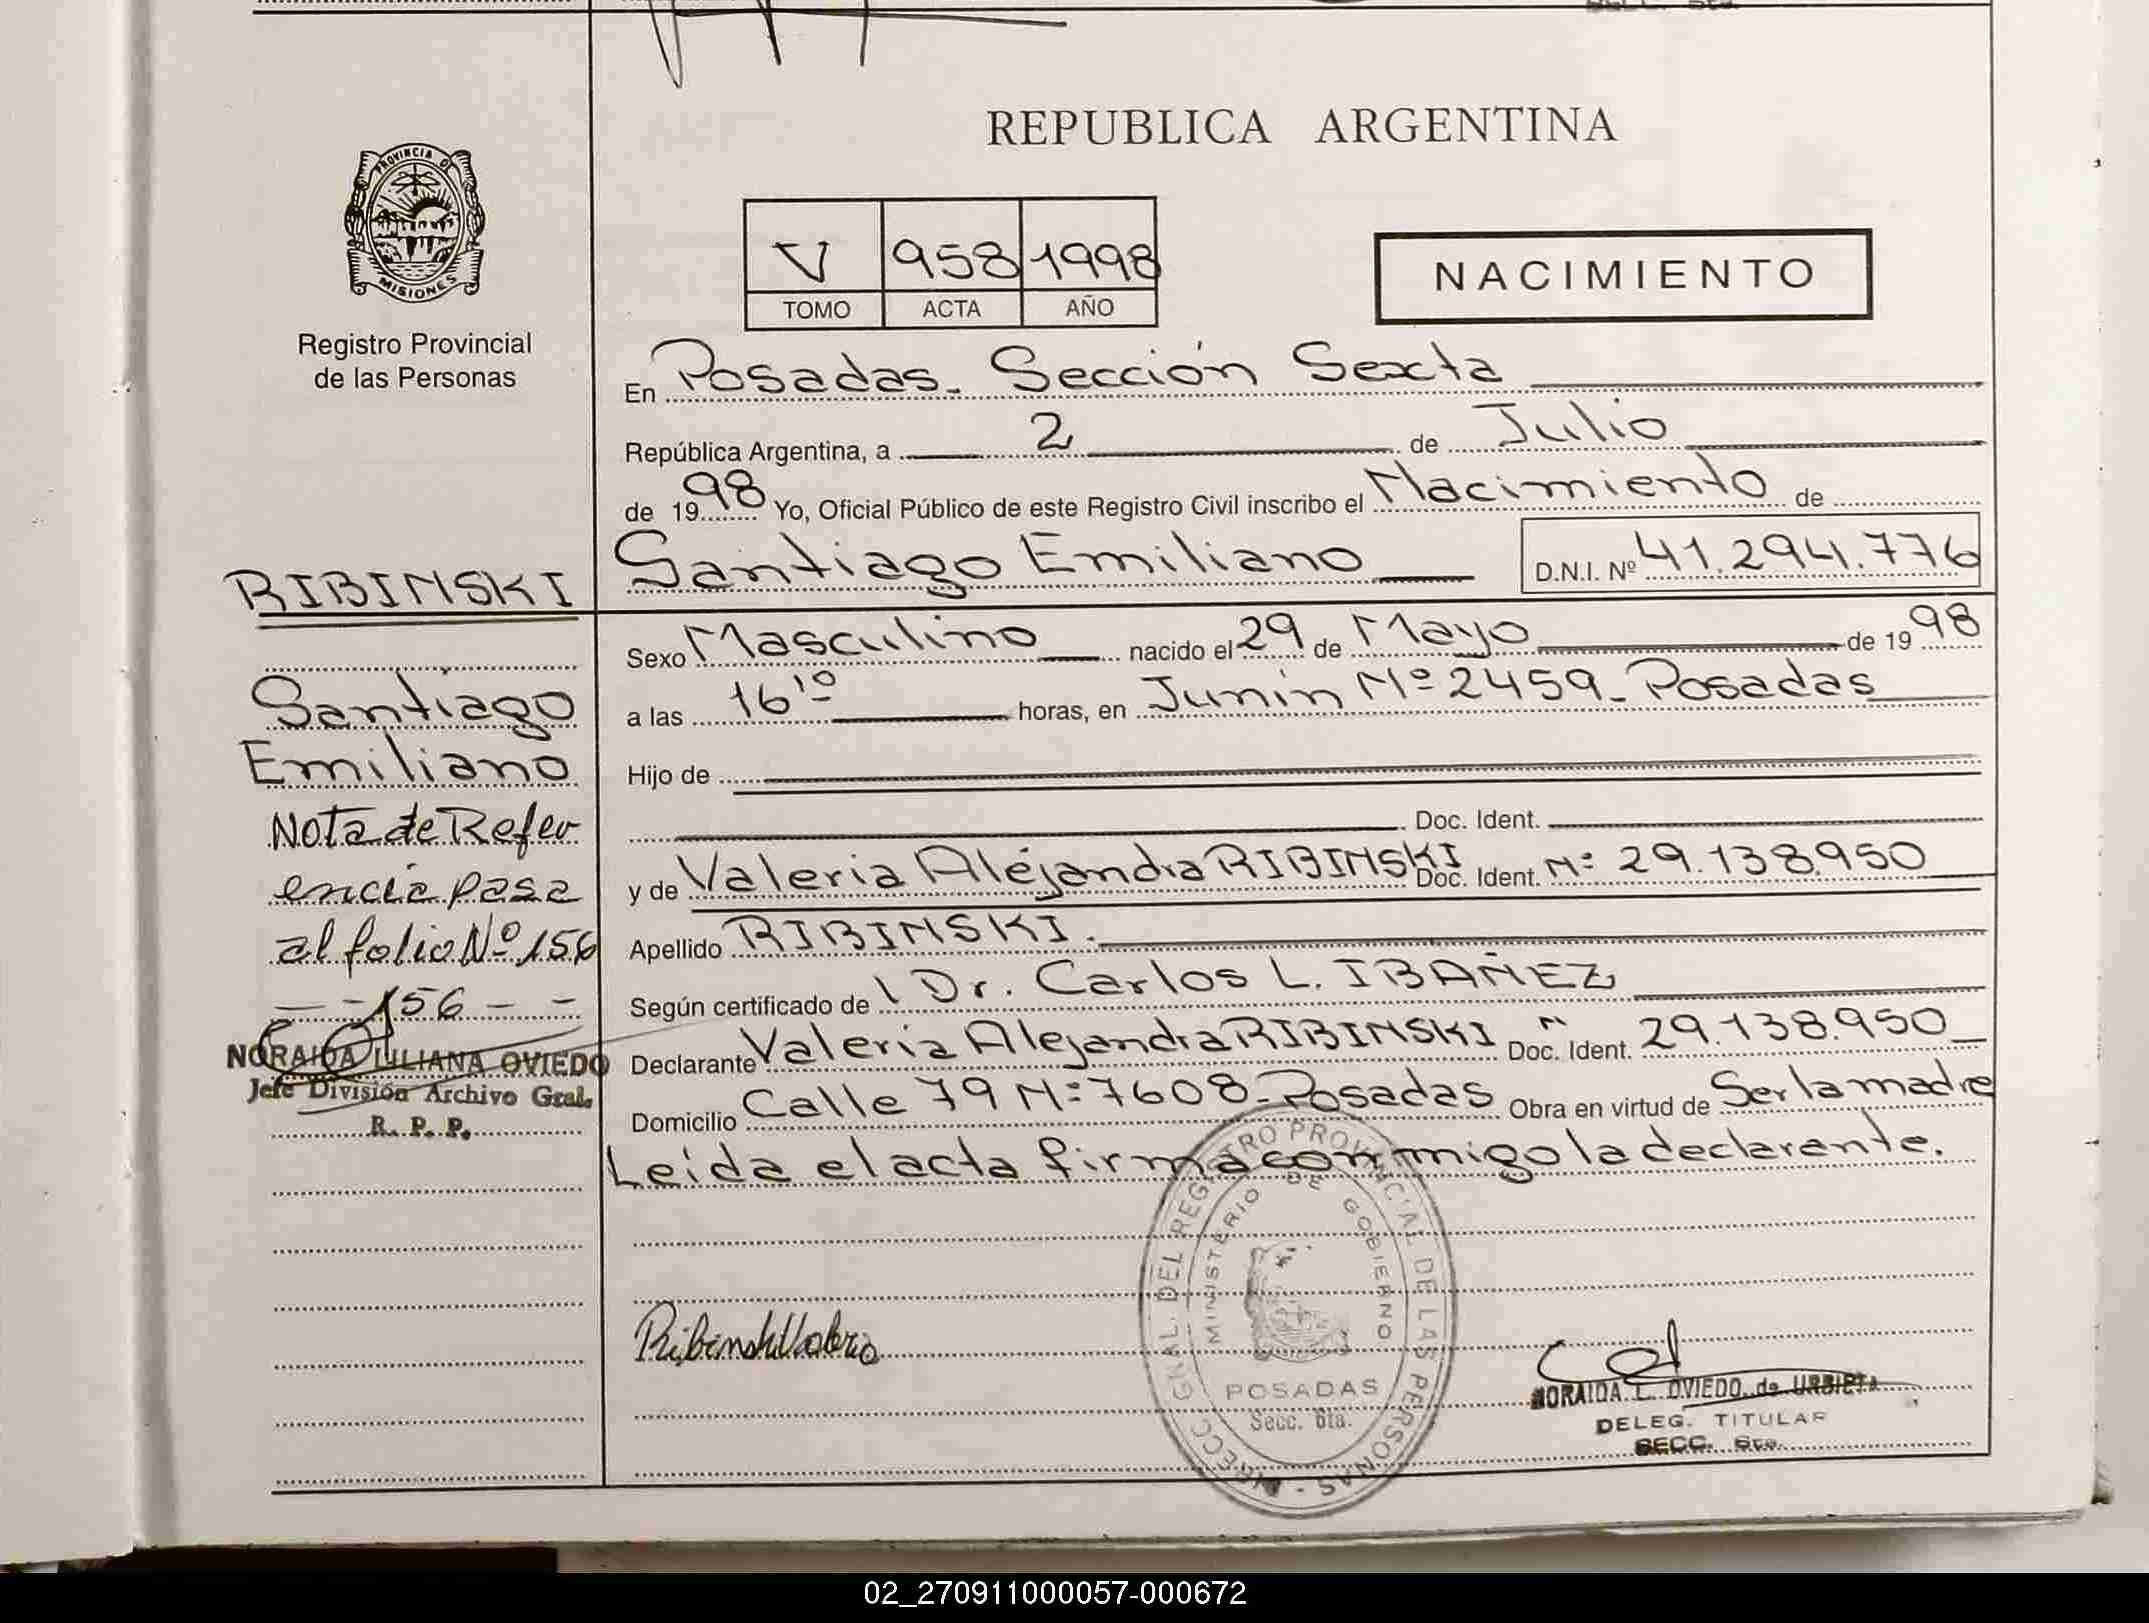 REPUBLICA ARGENTINA
PROVINCIA DE
MISIONES
Registro Provincial
de las Personas
V 958 1998
TOMO ACTA AÑO
NACIMIENTO
En Posadas. Sección Sexta
República Argentina, a 2 de Julio
de 1998 Yo, Oficial Público de este Registro Civil inscribo el Nacimiento de
Santiago Emiliano D.N.I. Nº 41.294.776
RIBINSKI
Santiago
Emiliano
Nota de Refer
encia pasa
al folio Nº 156
- - 156 - -
NORAIDA LILIANA OVIEDO
Jefe División Archivo Gral.
R. P. P.
Sexo Masculino nacido el 29 de Mayo de 1998
a las 16¹⁰ horas, en Junín Nº 2459 - Posadas
Hijo de
Doc. Ident.
y de Valeria Alejandra RIBINSKI Doc. Ident. Nº 29.138.950
Apellido RIBINSKI.
Según certificado de Dr. Carlos L. IBAÑEZ
Declarante Valeria Alejandra RIBINSKI Doc. Ident. N 29.138.950
Domicilio Calle 79 Nº 7608 - Posadas Obra en virtud de Ser la madre
Leída el acta firma conmigo la declarante.
GRAL. DEL REGISTRO PROVINCIAL DE LAS PERSONAS
MINISTERIO DE GOBIERNO
POSADAS
Secc. 6ta.
Ribinski Valeria
NORAIDA L. OVIEDO de URBIETA
DELEG. TITULAR
SECC. 6ta.
02_270911000057-000672